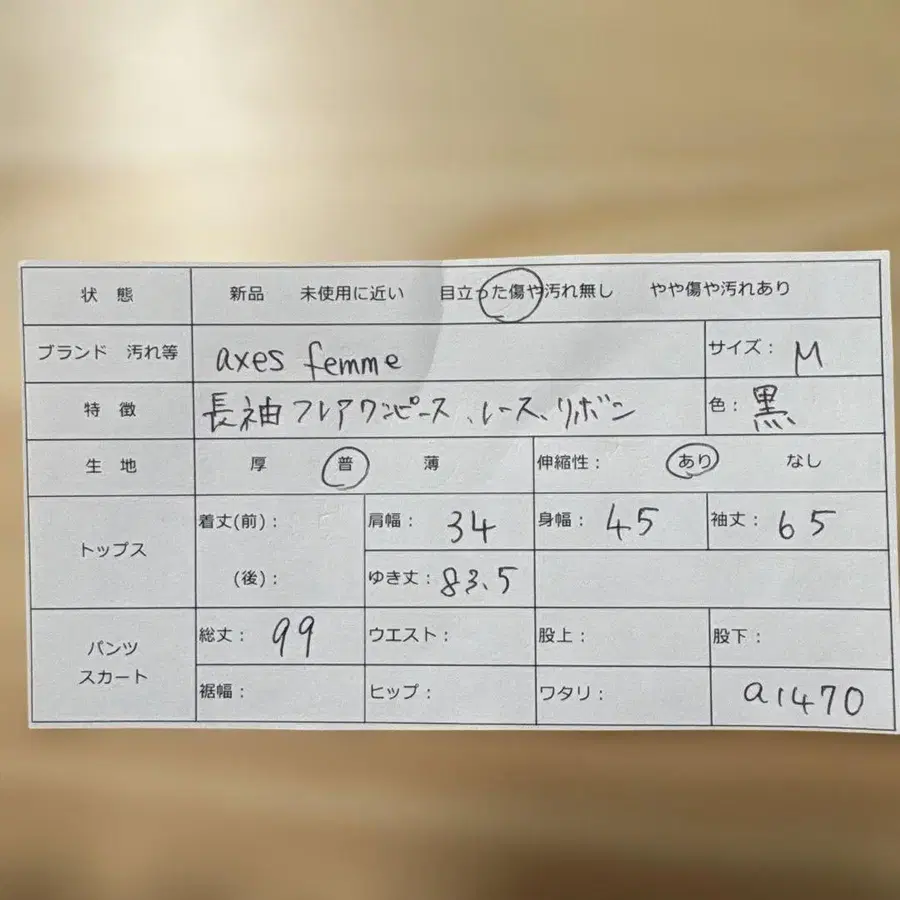 状 態 新品 未使用に近い 目立った傷や汚れ無し やや傷や汚れあり
ブランド 汚れ等 axes femme サイズ: M
特 徴 長袖フレアワンピース、レース、リボン 色: 黒
生 地 厚 普 薄 伸縮性: あり なし
トップス 着丈(前): 肩幅: 34 身幅: 45 袖丈: 65
(後): ゆき丈: 83.5
パンツ スカート 総丈: 99 ウエスト: 股上: 股下:
裾幅: ヒップ: ワタリ: a1470